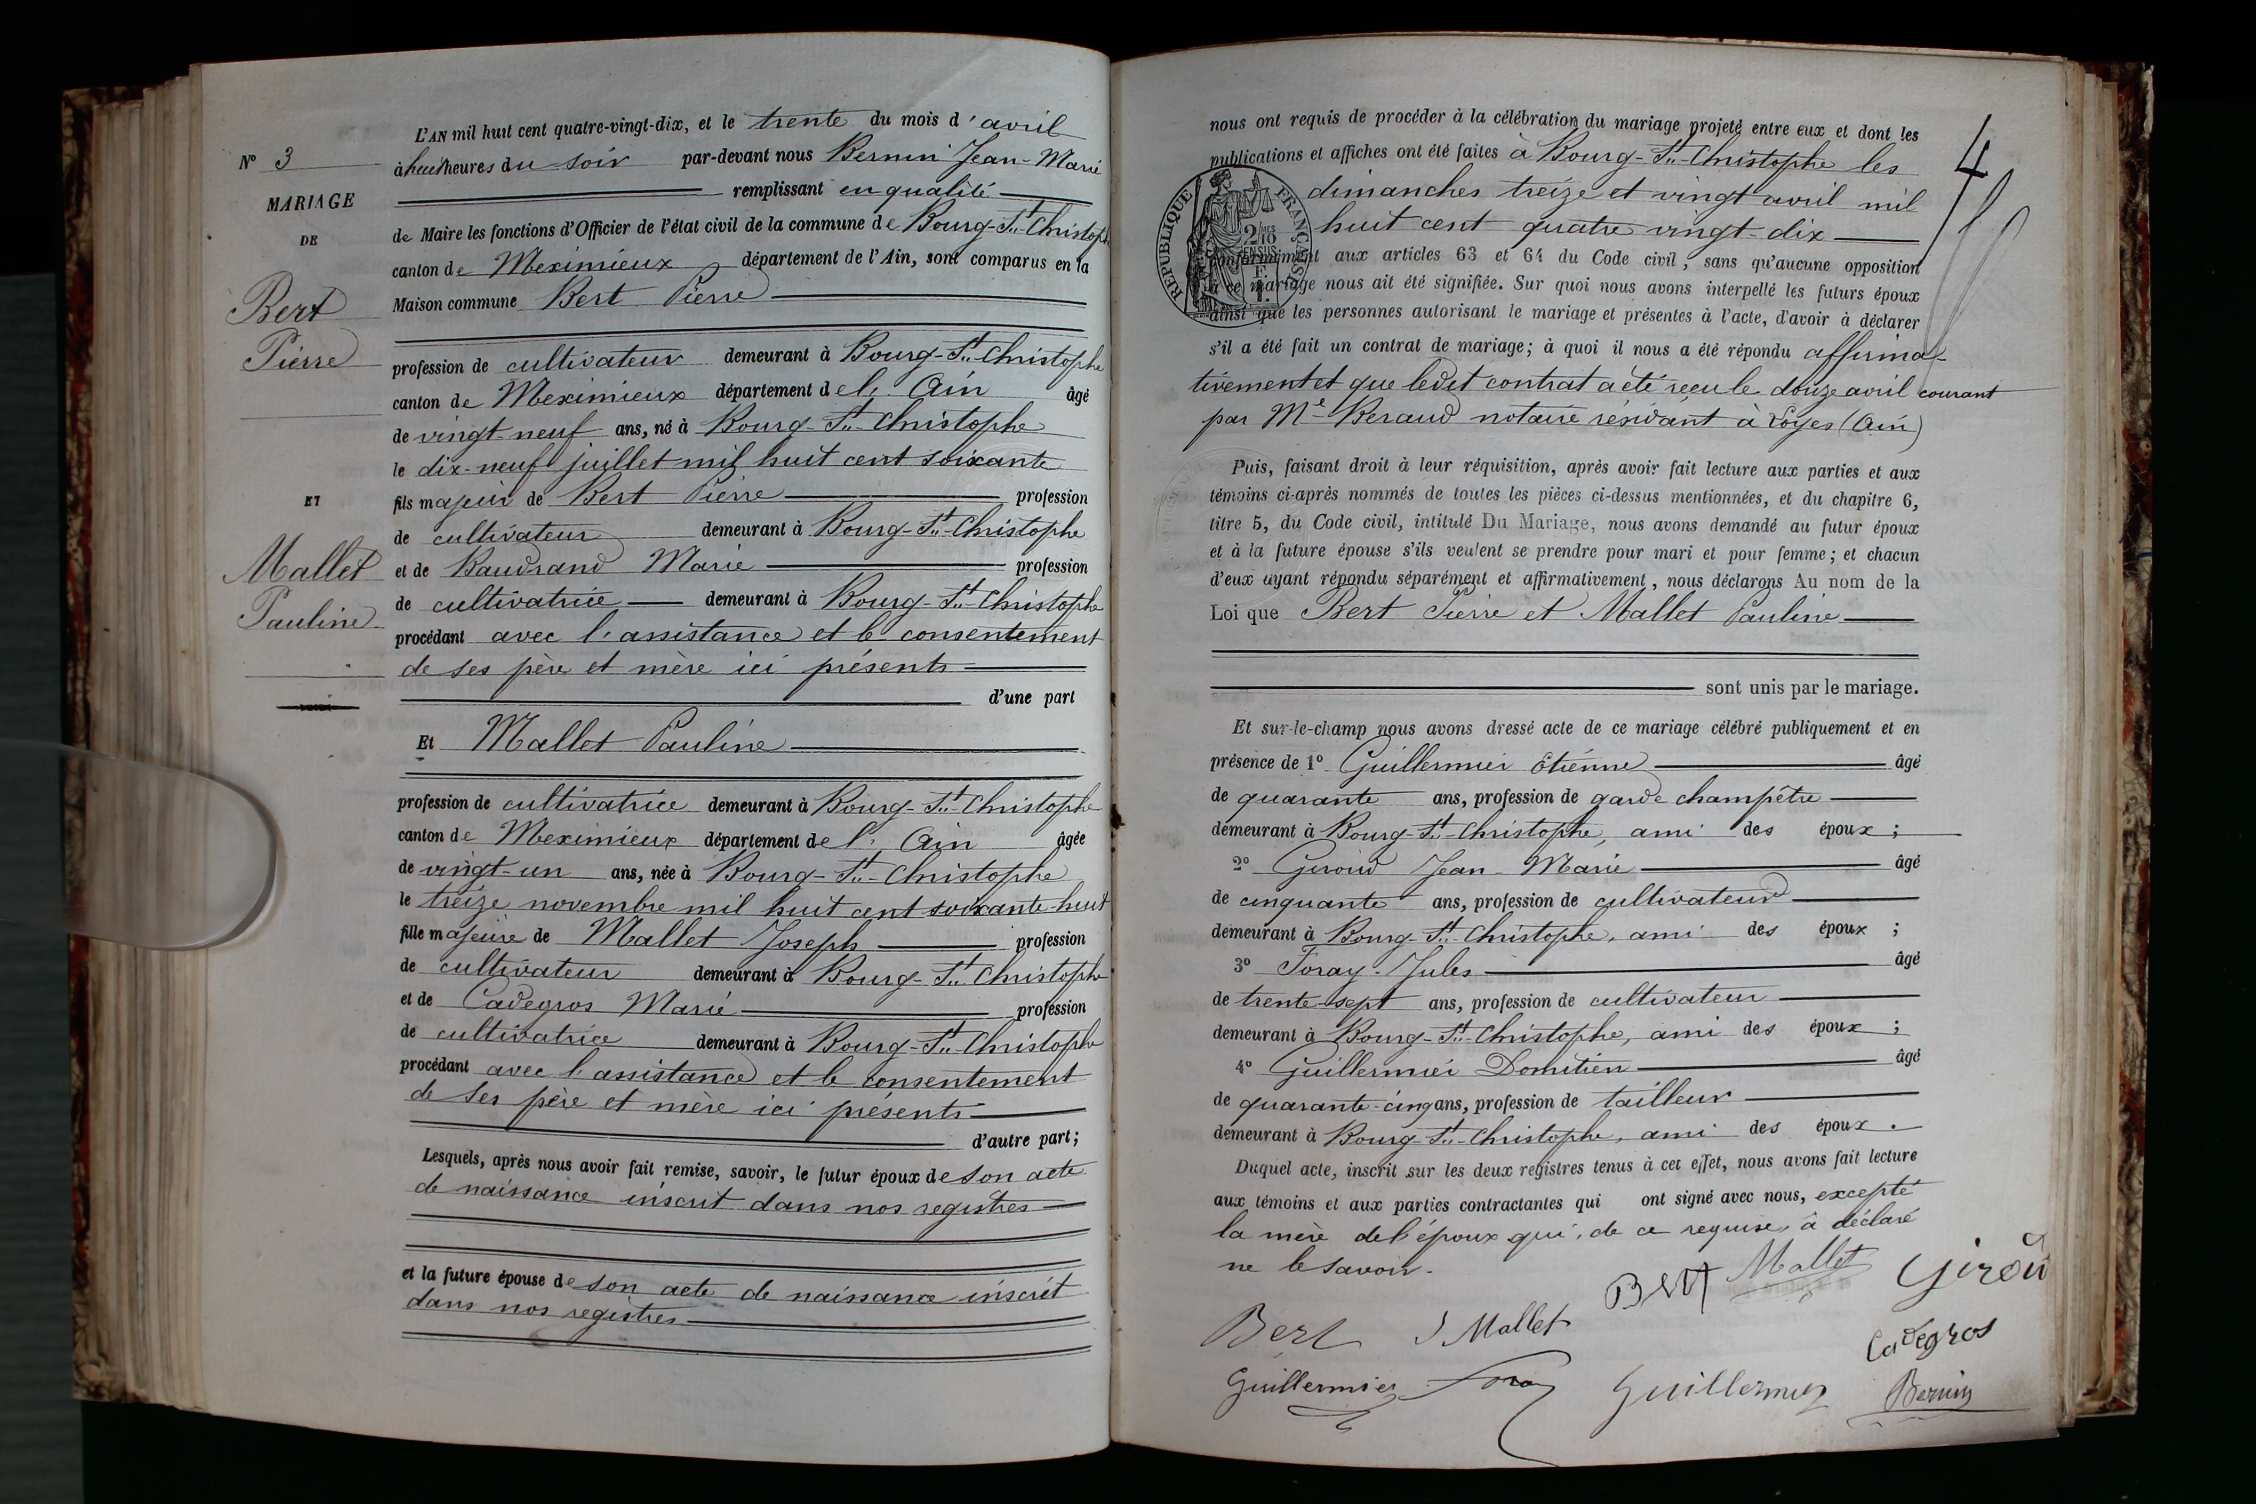 L'AN mil huit cent quatre-vingt-dix, et le trente du mois d'avril
N° 3
à huit heures du soir par-devant nous Bernin Jean-Marie
remplissant en qualité
MARIAGE
DE
de Maire les fonctions d'Officier de l'état civil de la commune de Bourg-St-Christophe
canton de Meximieux département de l'Ain, sont comparus en la
Maison commune Bert Pierre
Bert
Pierre
profession de cultivateur demeurant à Bourg-St-Christophe
canton de Meximieux département de l'Ain âgé
de vingt-neuf ans, né à Bourg-St-Christophe
le dix-neuf juillet mil huit cent soixante
ET
fils majeur de Bert Pierre profession
de cultivateur demeurant à Bourg-St-Christophe
Mallet
Pauline
et de Baudrand Marie profession
de cultivatrice demeurant à Bourg-St-Christophe
procédant avec l'assistance et le consentement
de ses père et mère ici présents
d'une part
Et Mallet Pauline
profession de cultivatrice demeurant à Bourg-St-Christophe
canton de Meximieux département de l'Ain âgée
de vingt-un ans, née à Bourg-St-Christophe
le treize novembre mil huit cent soixante-huit
fille majeure de Mallet Joseph profession
de cultivateur demeurant à Bourg-St-Christophe
et de Cadegros Marie profession
de cultivatrice demeurant à Bourg-St-Christophe
procédant avec l'assistance et le consentement
de ses père et mère ici présents
d'autre part;
Lesquels, après nous avoir fait remise, savoir, le futur époux de son acte
de naissance inscrit dans nos registres
et la future épouse de son acte de naissance inscrit
dans nos registres
4
nous ont requis de procéder à la célébration du mariage projeté entre eux et dont les
publications et affiches ont été faites à Bourg-St-Christophe les
dimanches treize et vingt avril mil
huit cent quatre vingt-dix
RÉPUBLIQUE FRANÇAISE
conformément aux articles 63 et 64 du Code civil, sans qu'aucune opposition
à ce mariage nous ait été signifiée. Sur quoi nous avons interpellé les futurs époux
ainsi que les personnes autorisant le mariage et présentes à l'acte, d'avoir à déclarer
s'il a été fait un contrat de mariage; à quoi il nous a été répondu affirma-
tivement et que ledit contrat a été reçu le douze avril courant
par Me Beraud notaire résidant à Loyes (Ain)
Puis, faisant droit à leur réquisition, après avoir fait lecture aux parties et aux
témoins ci-après nommés de toutes les pièces ci-dessus mentionnées, et du chapitre 6,
titre 5, du Code civil, intitulé Du Mariage, nous avons demandé au futur époux
et à la future épouse s'ils veulent se prendre pour mari et pour femme; et chacun
d'eux ayant répondu séparément et affirmativement, nous déclarons Au nom de la
Loi que Bert Pierre et Mallet Pauline
sont unis par le mariage.
Et sur-le-champ nous avons dressé acte de ce mariage célébré publiquement et en
présence de 1° Guillermier Etienne âgé
de quarante ans, profession de garde champêtre
demeurant à Bourg-St-Christophe, ami des époux;
2° Giroud Jean-Marie âgé
de cinquante ans, profession de cultivateur
demeurant à Bourg-St-Christophe, ami des époux;
3° Foray Jules âgé
de trente-sept ans, profession de cultivateur
demeurant à Bourg-St-Christophe, ami des époux;
4° Guillermier Domitien âgé
de quarante-cinq ans, profession de tailleur
demeurant à Bourg-St-Christophe, ami des époux.
Duquel acte, inscrit sur les deux registres tenus à cet effet, nous avons fait lecture
aux témoins et aux parties contractantes qui ont signé avec nous, excepté
la mère de l'époux qui, de ce requise, a déclaré
ne le savoir.
Bert Mallet Giroud
Bert J Mallet Cadegros
Guillermier Foray Guillermier Bernin